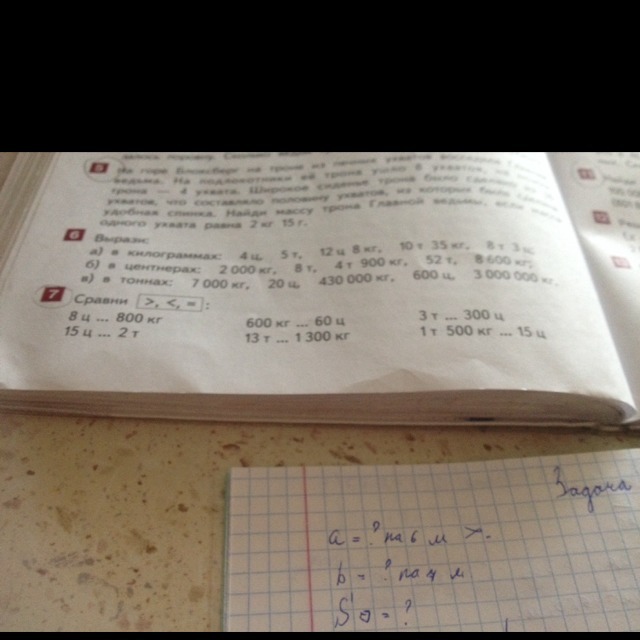 5 На горе Блоксберг на трон из печных ухватов
ведьма. На подлокотники её трона ушло 8 ухватов, на
трона — 4 ухвата. Широкое сиденье трона было
ухватов, что составляло половину ухватов, из которых была
удобная спинка. Найди массу трона Главной ведьмы, если
одного ухвата равна 2 кг 15 г.
6 Вырази:
а) в килограммах: 4 ц, 5 т, 12 ц 8 кг, 10 т 35 кг, 8 т 3 ц;
б) в центнерах: 2 000 кг, 8 т, 4 т 900 кг, 52 т, 8 600 кг;
в) в тоннах: 7 000 кг, 20 ц, 430 000 кг, 600 ц, 3 000 000 кг.
7 Сравни >, <, = :
8 ц ... 800 кг 600 кг ... 60 ц 3 т ... 300 ц
15 ц ... 2 т 13 т ... 1 300 кг 1 т 500 кг ... 15 ц
11
12
Задача
a = ? на 6 м >.
b = ? на 4 м
S = ?